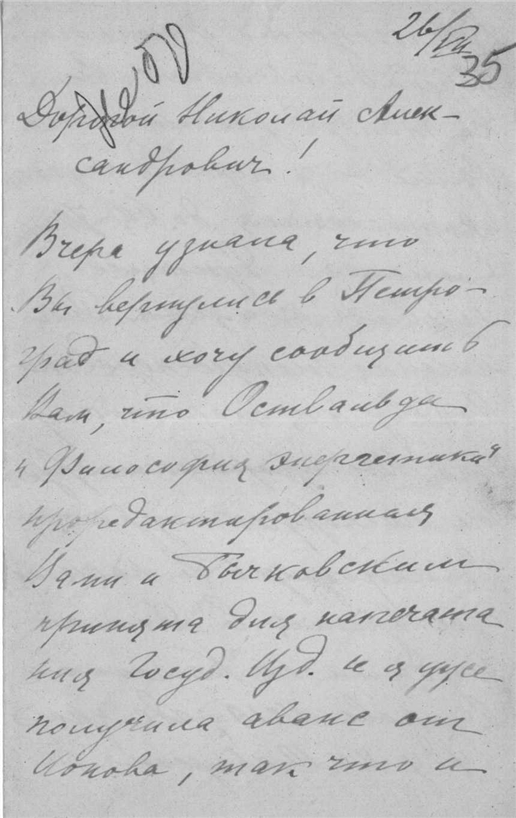 26/VII
35
Дорогой Николай Алек-
сандрович!
Вчера узнала, что
Вы вернулись в Петро-
град и хочу сообщить
Вам, что Оствальда
"Философия энергетики"
проредактированная
Вами и Бычковским
принята для напечата
ния Госуд. Изд. и я уже
получила аванс от
Ионова, так что и